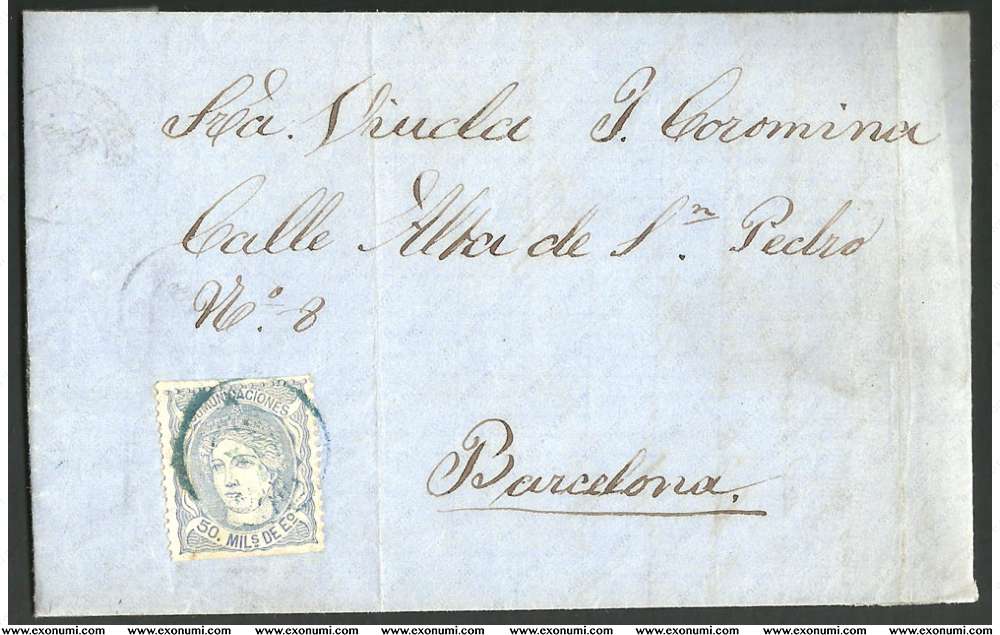 Sra. Viuda J. Coromina
Calle Alta de Sn. Pedro
No. 8
COMUNICACIONES
50. MILS DE ES
Barcelona.
www.exonumi.com www.exonumi.com www.exonumi.com www.exonumi.com www.exonumi.com www.exonumi.com www.exonumi.com www.exonumi.com